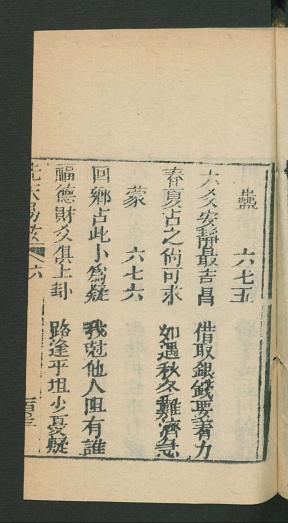 蠱 六七五
六爻安靜最吉昌 借取銀錢要着力
春夏占之尚可求 如遇秋冬難濟急
蒙 六七六
回鄉占此卜為疑 我尅他人阻有誰
福德財爻俱上卦 路逢平坦少憂疑